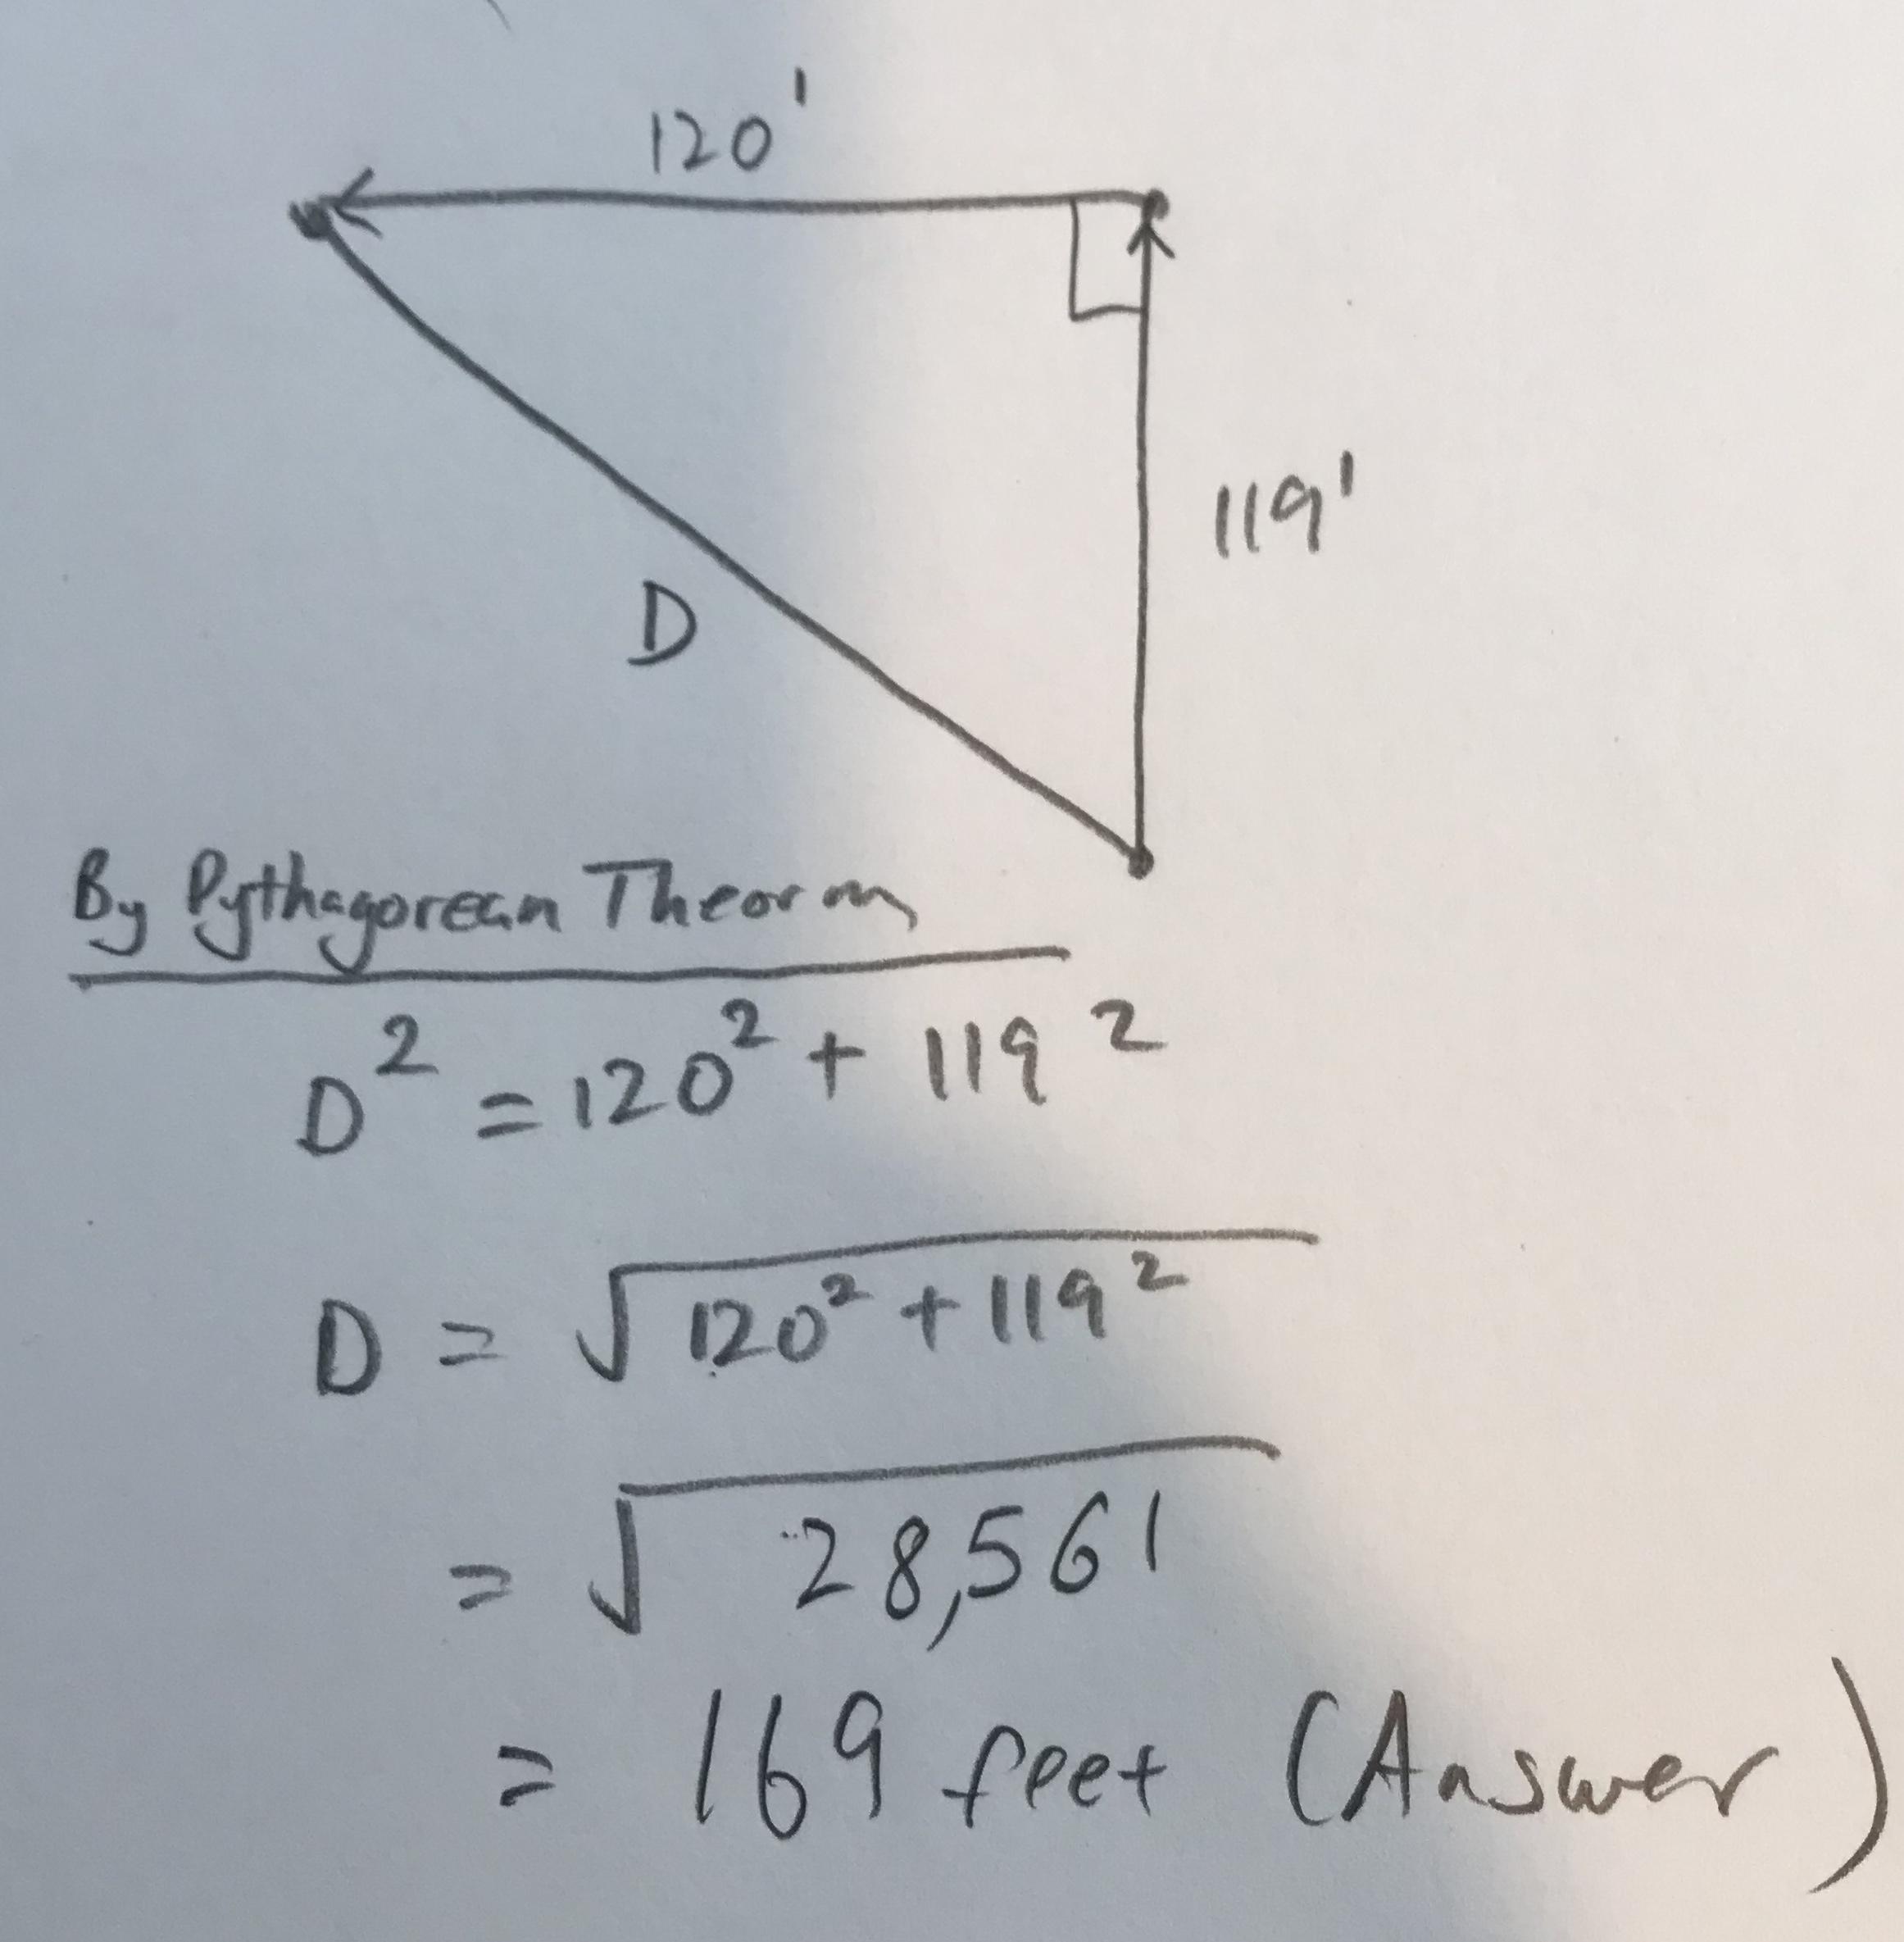 120'
119'
D
By Pythagorean Theorm
D² = 120² + 119²
D = √120² + 119²
= √28,561
= 169 feet (Answer)